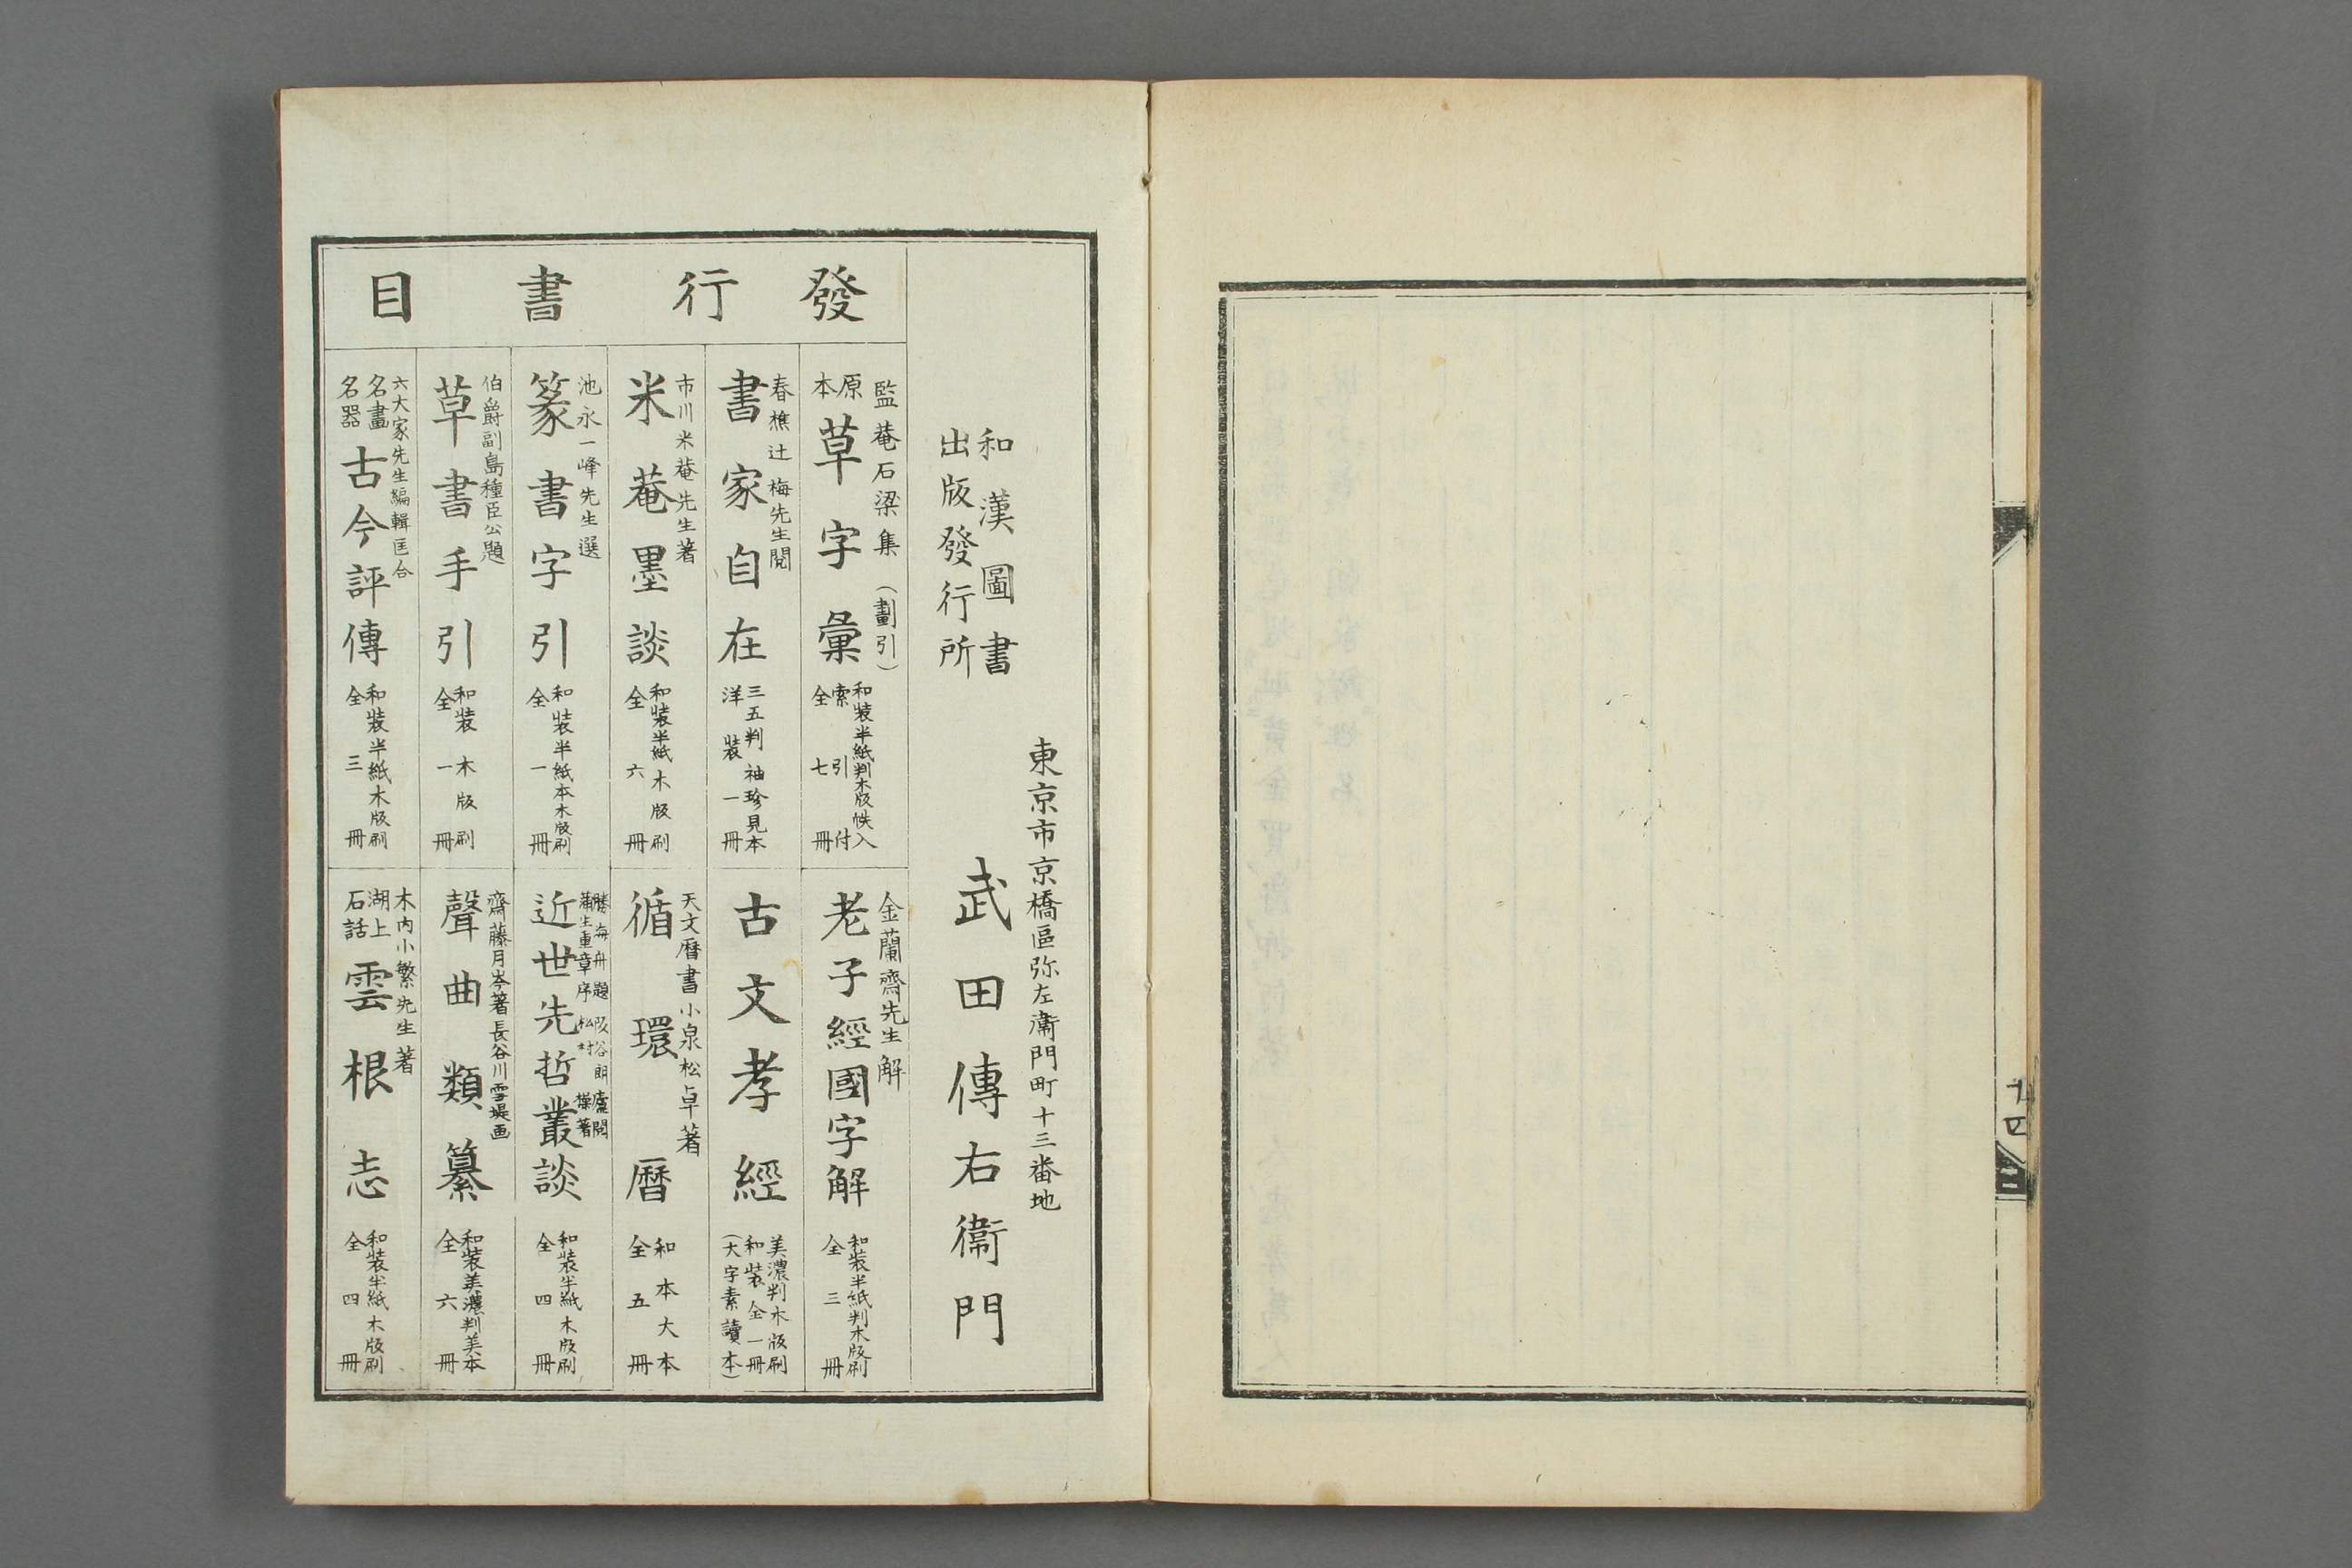 九四
東京市京橋區弥左衞門町十三番地
和漢圖書
出版發行所
武田傳右衞門
發行書目
監菴石梁集(劃引)
原本草字彙
和裝半紙判木版帙入
索引付
全七冊
春樵辻梅先生閲
書家自在
三五判袖珍見本
洋裝一冊
市川米菴先生著
米菴墨談
和裝半紙木版刷
全六冊
池永一峰先生選
篆書字引
和裝半紙本木版刷
全一冊
伯爵副島種臣公題
草書手引
和裝木版刷
全一冊
六大家先生編輯匡合
名畫名器古今評傳
和裝半紙木版刷
全三冊
金蘭齋先生解
老子經國字解
和裝半紙判木版刷
全三冊
古文孝經
美濃判木版刷
和裝全一冊
(大字素讀本)
天文暦書小泉松卓著
循環暦
和本大本
全五冊
勝海舟題阪谷朗廬閲
蒲生重章序松村操著
近世先哲叢談
和裝半紙木版刷
全四冊
齋藤月岑著長谷川雪堤画
聲曲類纂
和裝美濃判美本
全六冊
木内小繁先生著
湖上石話雲根志
和裝半紙木版刷
全四冊